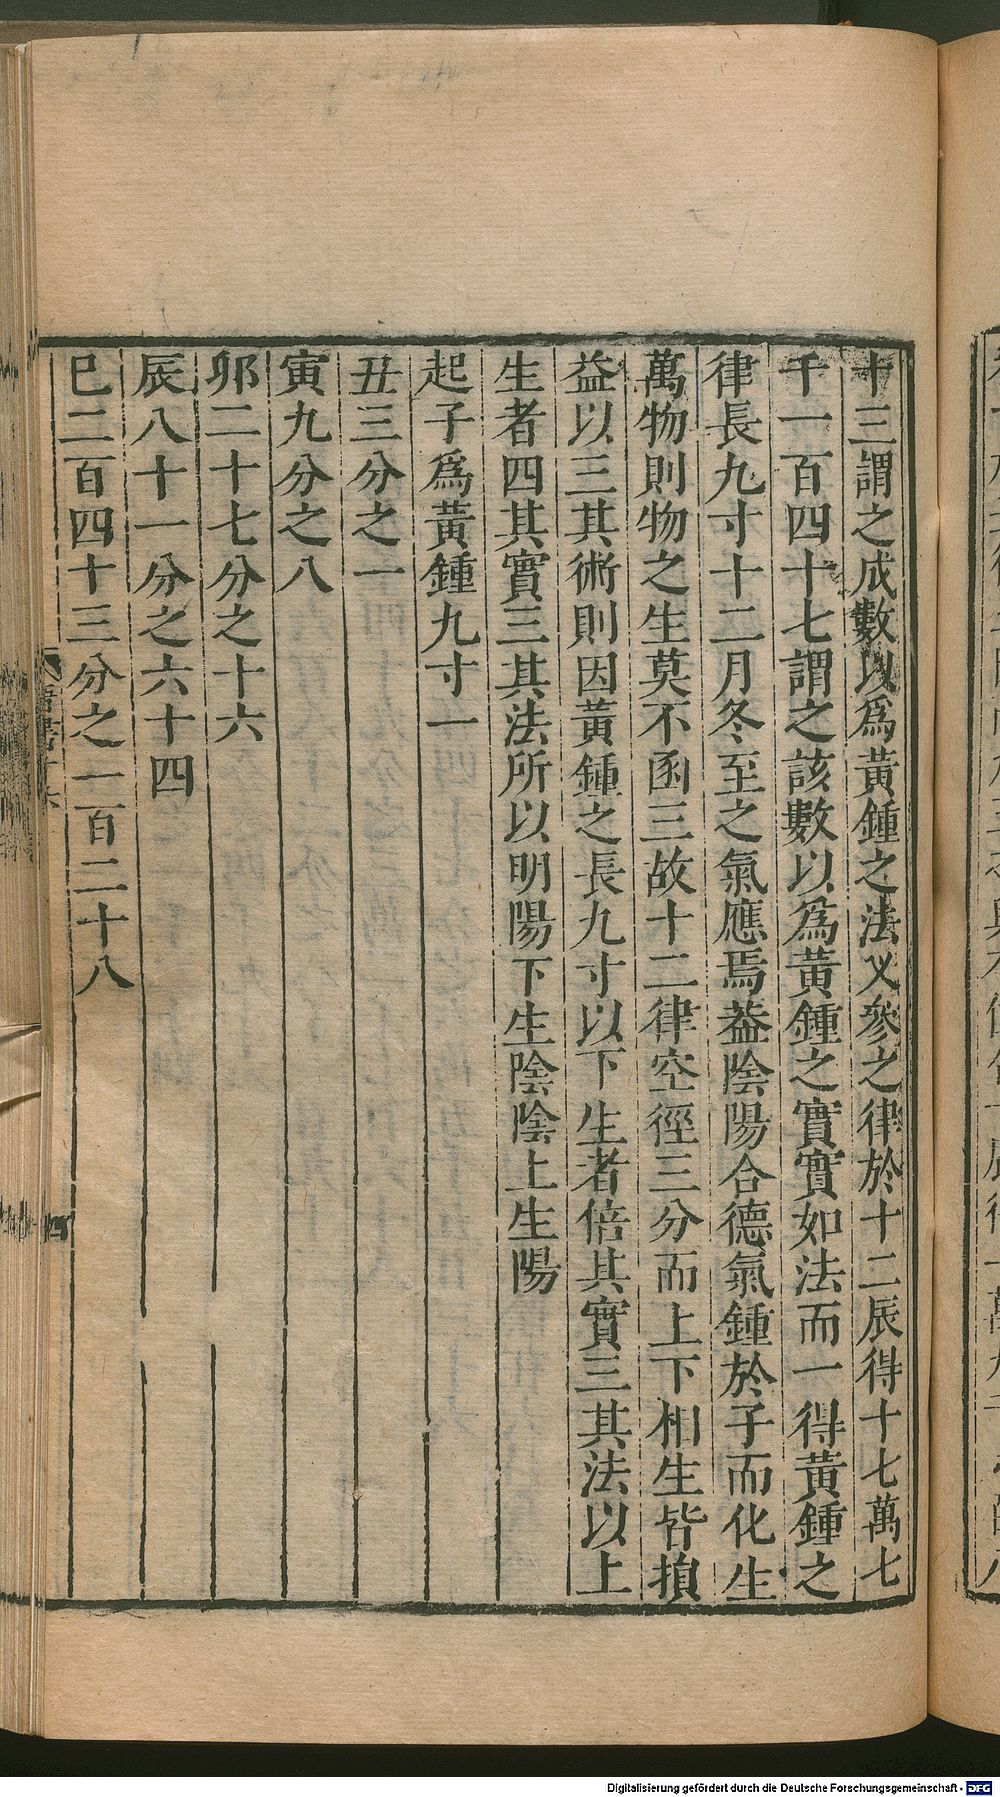 十三謂之成數以爲黃鍾之法又參之律於十二辰得十七萬七
千一百四十七謂之該數以爲黃鍾之實實如法而一得黃鍾之
律長九寸十二月冬至之氣應焉葢陰陽合德氣鍾於子而化生
萬物則物之生莫不函三故十二律空徑三分而上下相生皆損
益以三其術則因黃鍾之長九寸以下生者倍其實三其法以上
生者四其實三其法所以明陽下生陰陰上生陽
起子爲黃鍾九寸一
丑三分之一
寅九分之八
卯二十七分之十六
辰八十一分之六十四
巳二百四十三分之一百二十八
四
Digitalisierung gefördert durch die Deutsche Forschungsgemeinschaft - DFG